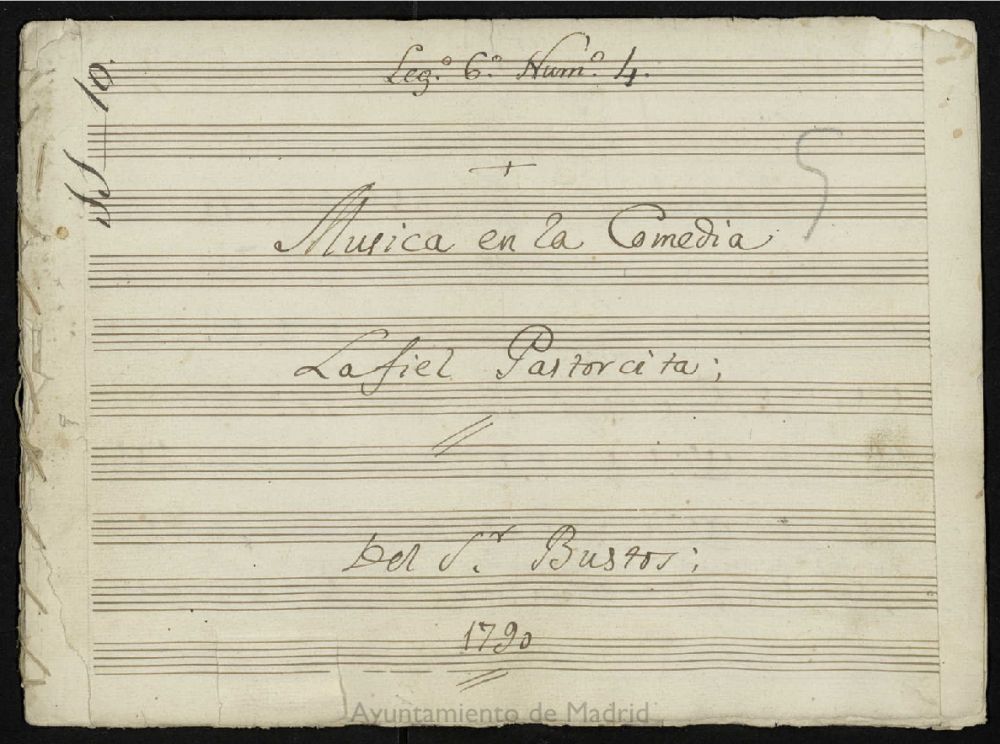 Leg.º 6.º Num.º 4.
+
Musica en la Comedia
La fiel Pastorcita;
Del S.r Bustos;
1790
Ayuntamiento de Madrid